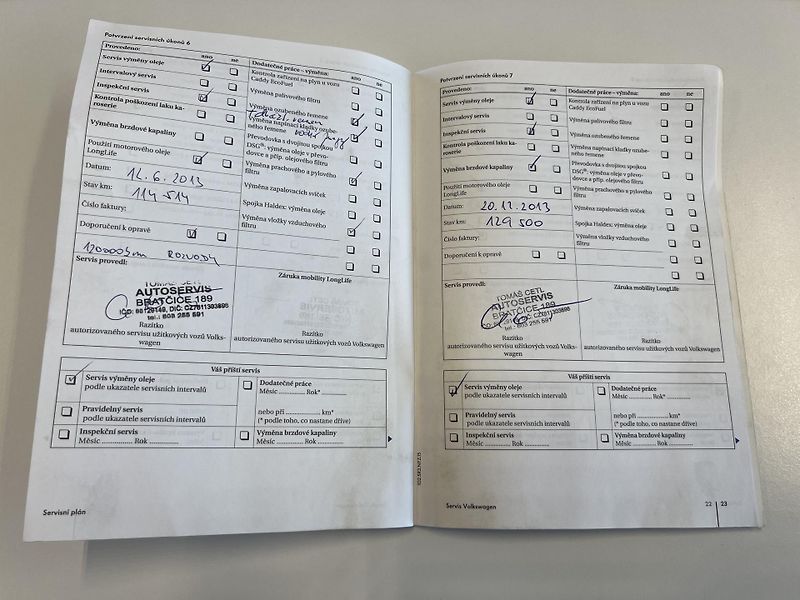 Potvrzení servisních úkonů 6
Provedeno:
ano
ne
Servis výměny oleje
Intervalový servis
Inspekční servis
Kontrola poškození laku karoserie
Výměna brzdové kapaliny
Použití motorového oleje LongLife
Datum: 12.6.2013
Stav km: 114 514
Číslo faktury:
Doporučení k opravě
120000km ROZVODY
Servis provedl:
Dodatečné práce – výměna:
ano
ne
Kontrola zařízení na plyn u vozu Caddy EcoFuel
Výměna palivového filtru
Výměna ozubeného řemene
Výměna napínací kladky ozubeného řemene
Převodovka s dvojitou spojkou DSG®: výměna oleje v převodovce a příp. olejového filtru
Výměna prachového a pylového filtru
Výměna zapalovacích svíček
Spojka Haldex: výměna oleje
Výměna vložky vzduchového filtru
Záruka mobility LongLife
TOMÁŠ CETL
AUTOSERVIS
BRATČICE 189
tel.: 603 255 591
Razítko
autorizovaného servisu užitkových vozů Volkswagen
Razítko
autorizovaného servisu užitkových vozů Volkswagen
Váš příští servis
Servis výměny oleje
podle ukazatele servisních intervalů
Pravidelný servis
podle ukazatele servisních intervalů
Inspekční servis
Měsíc .............. Rok ..............
Dodatečné práce
Měsíc .............. Rok*
nebo při .................. km*
(* podle toho, co nastane dříve)
Výměna brzdové kapaliny
Měsíc .............. Rok ..............
Servisní plán
Potvrzení servisních úkonů 7
Provedeno:
ano
ne
Servis výměny oleje
Intervalový servis
Inspekční servis
Kontrola poškození laku karoserie
Výměna brzdové kapaliny
Použití motorového oleje LongLife
Datum: 20.12.2013
Stav km: 129 500
Číslo faktury:
Doporučení k opravě
Servis provedl:
Dodatečné práce – výměna:
ano
ne
Kontrola zařízení na plyn u vozu Caddy EcoFuel
Výměna palivového filtru
Výměna ozubeného řemene
Výměna napínací kladky ozubeného řemene
Převodovka s dvojitou spojkou DSG®: výměna oleje v převodovce a příp. olejového filtru
Výměna prachového a pylového filtru
Výměna zapalovacích svíček
Spojka Haldex: výměna oleje
Výměna vložky vzduchového filtru
Záruka mobility LongLife
TOMÁŠ CETL
AUTOSERVIS
BRATČICE 189
tel.: 603 255 591
Razítko
autorizovaného servisu užitkových vozů Volkswagen
Razítko
autorizovaného servisu užitkových vozů Volkswagen
Váš příští servis
Servis výměny oleje
podle ukazatele servisních intervalů
Pravidelný servis
podle ukazatele servisních intervalů
Inspekční servis
Měsíc .............. Rok ..............
Dodatečné práce
Měsíc .............. Rok*
nebo při .................. km*
(* podle toho, co nastane dříve)
Výměna brzdové kapaliny
Měsíc .............. Rok ..............
Servis Volkswagen
22
23